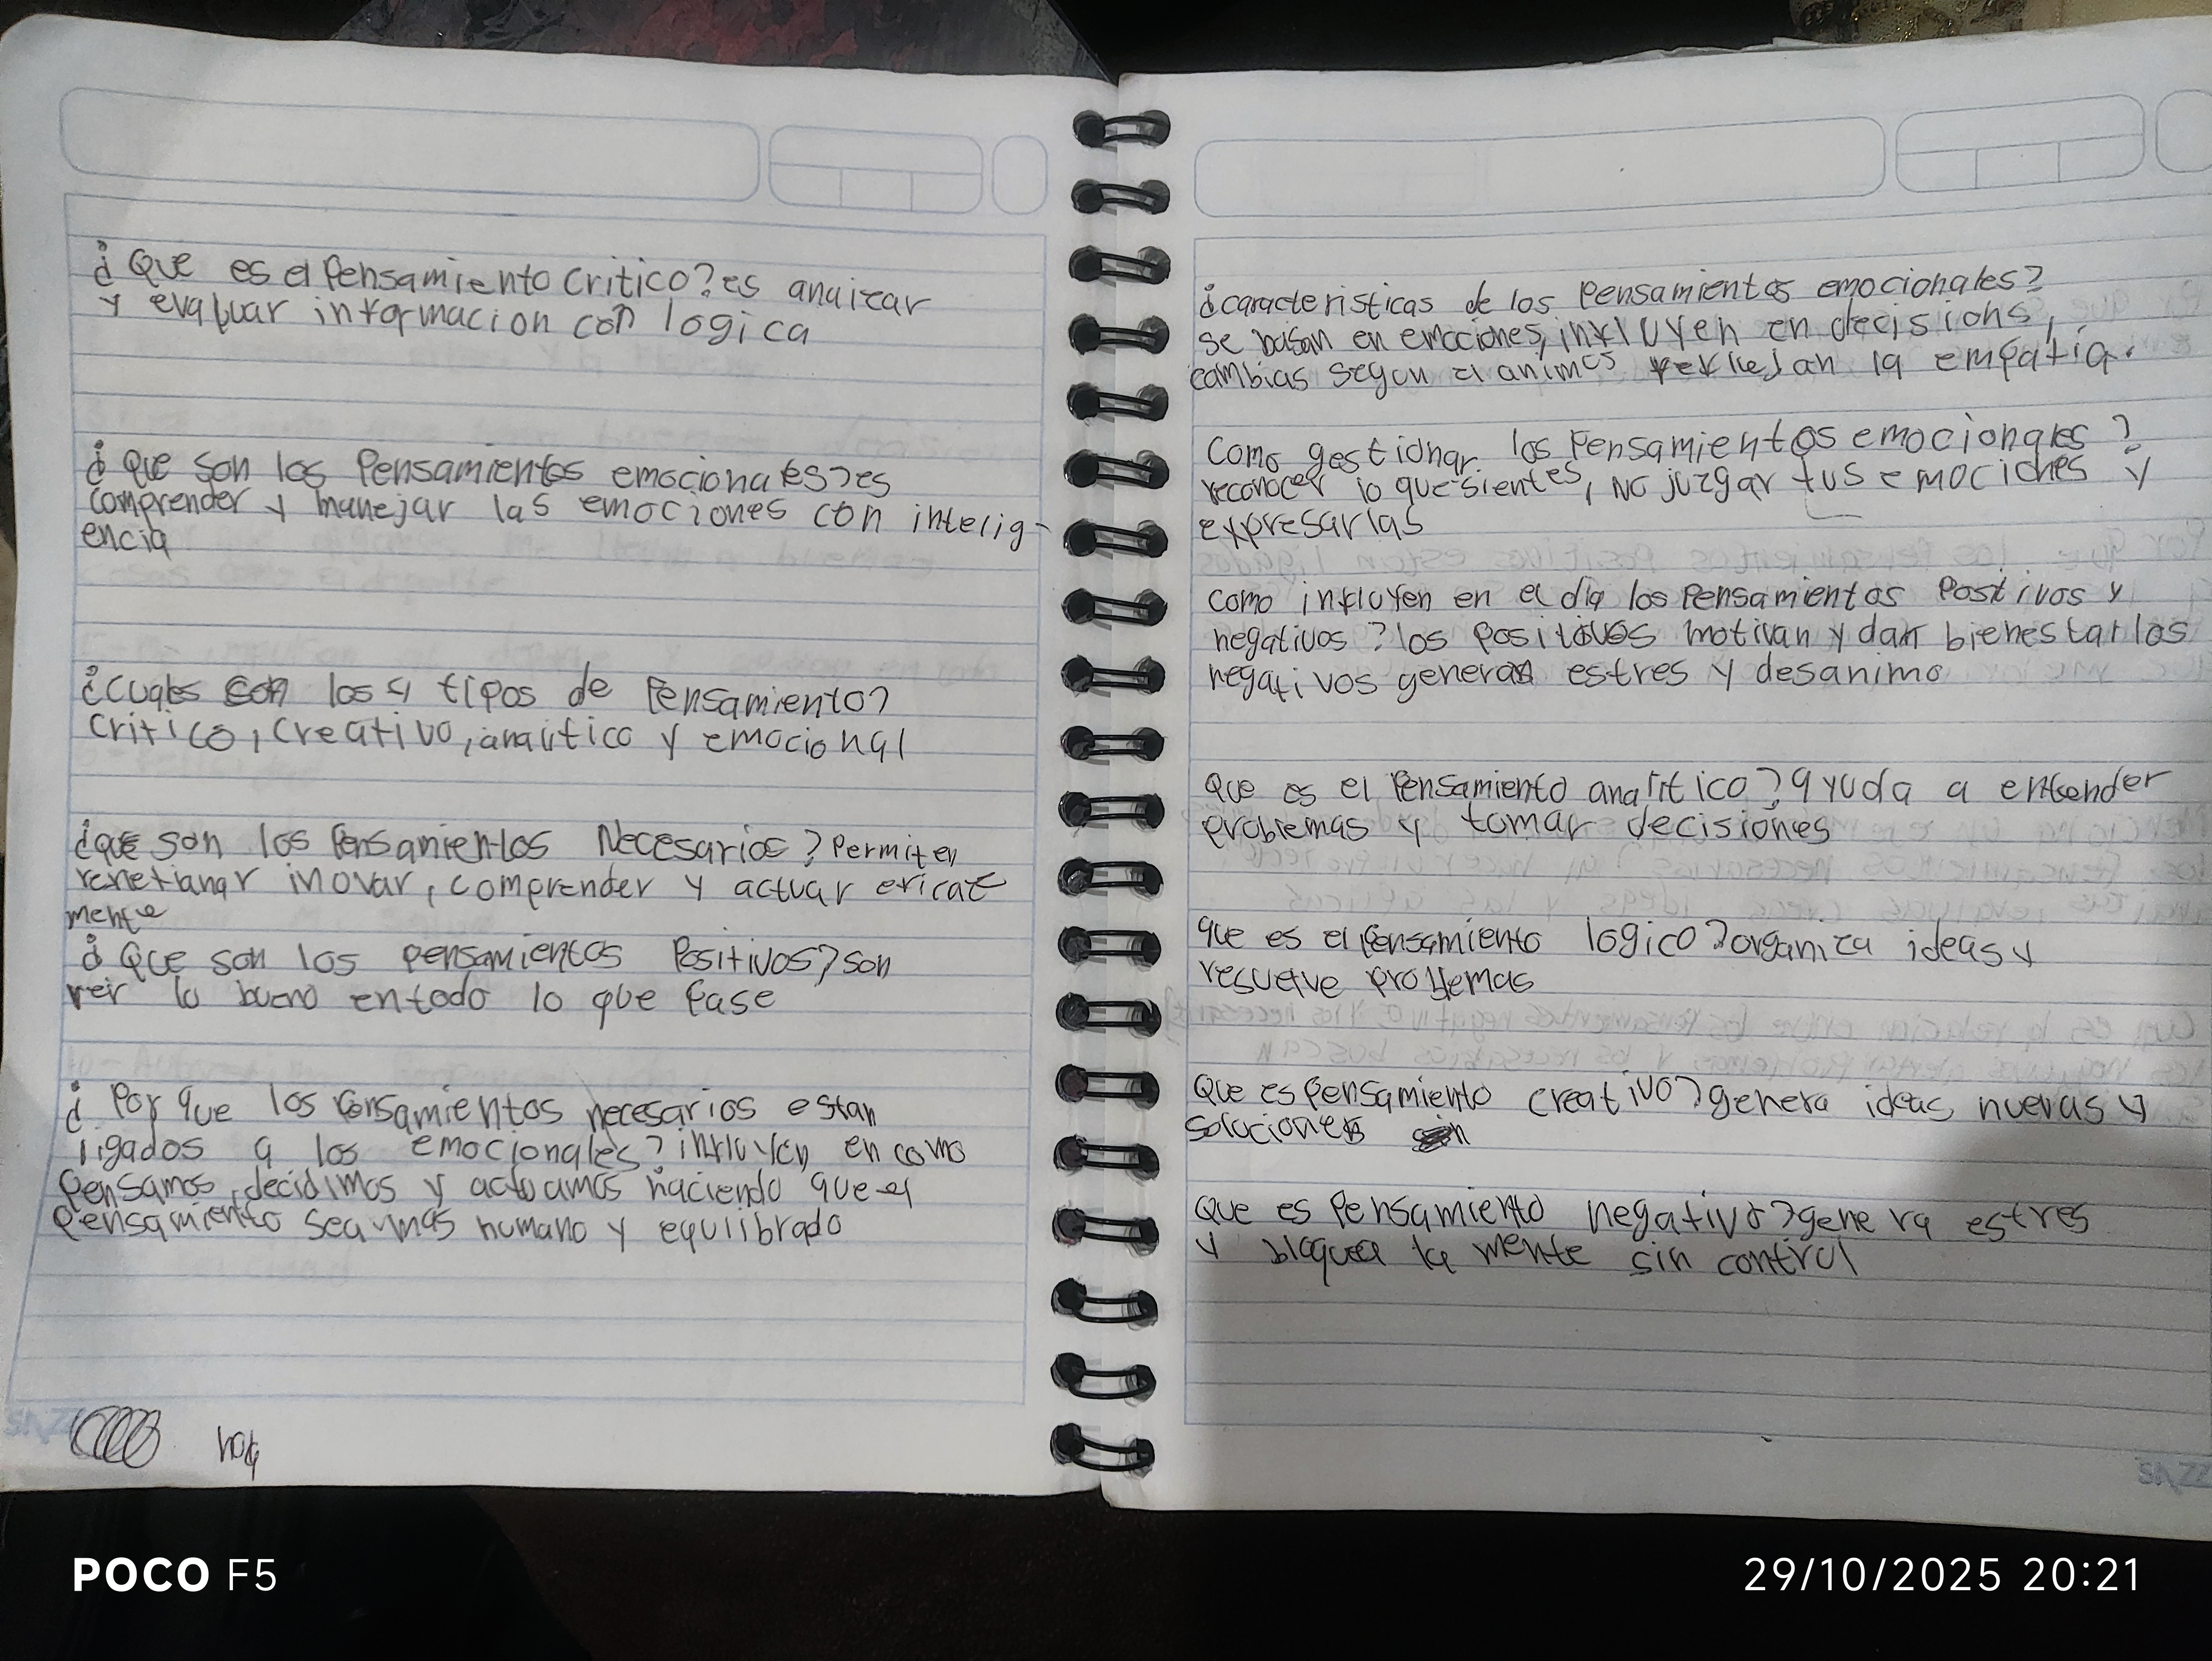 ¿Que es el Pensamiento Critico? es anaizar
y evaluar informacion con logica
¿Que son los Pensamientos emocionales? es
comprender y manejar las emociones con intelig-
encia
¿Cuales son los 4 tipos de Pensamiento?
Critico, Creativo, analitico y emocional
¿que son los Pensamientos Necesarios? Permiten
inovar, comprender y actuar
mente
¿Que son los pensamientos Positivos? son
ver lo bueno en todo lo que Pase
¿Por que los Pensamientos necesarios estan
ligados a los emocionales? influyen en como
Pensamos, decidimos y actuamos haciendo que el
Pensamiento sea mas humano y equilibrado
hoja
¿caracteristicas de los Pensamientos emocionales?
se basan en emociones, influyen en decisions,
cambias segun el animos reflejan la empatia.
Como gestionar los Pensamientos emocionales?
reconocer lo que sientes, No juzgar tus emociones y
expresarlas
Como influyen en el dia los Pensamientos Positivos y
negativos? los Positivos motivan y dan bienestar los
negativos generan estres y desanimo
Que es el Pensamiento analitico? ayuda a entender
problemas y tomar decisiones
que es el Pensamiento logico? organiza ideas y
resuelve problemas
Que es Pensamiento creativo? genera ideas nuevas y
soluciones
Que es Pensamiento negativo? genera estres
y bloquea la mente sin control
POCO F5
29/10/2025 20:21